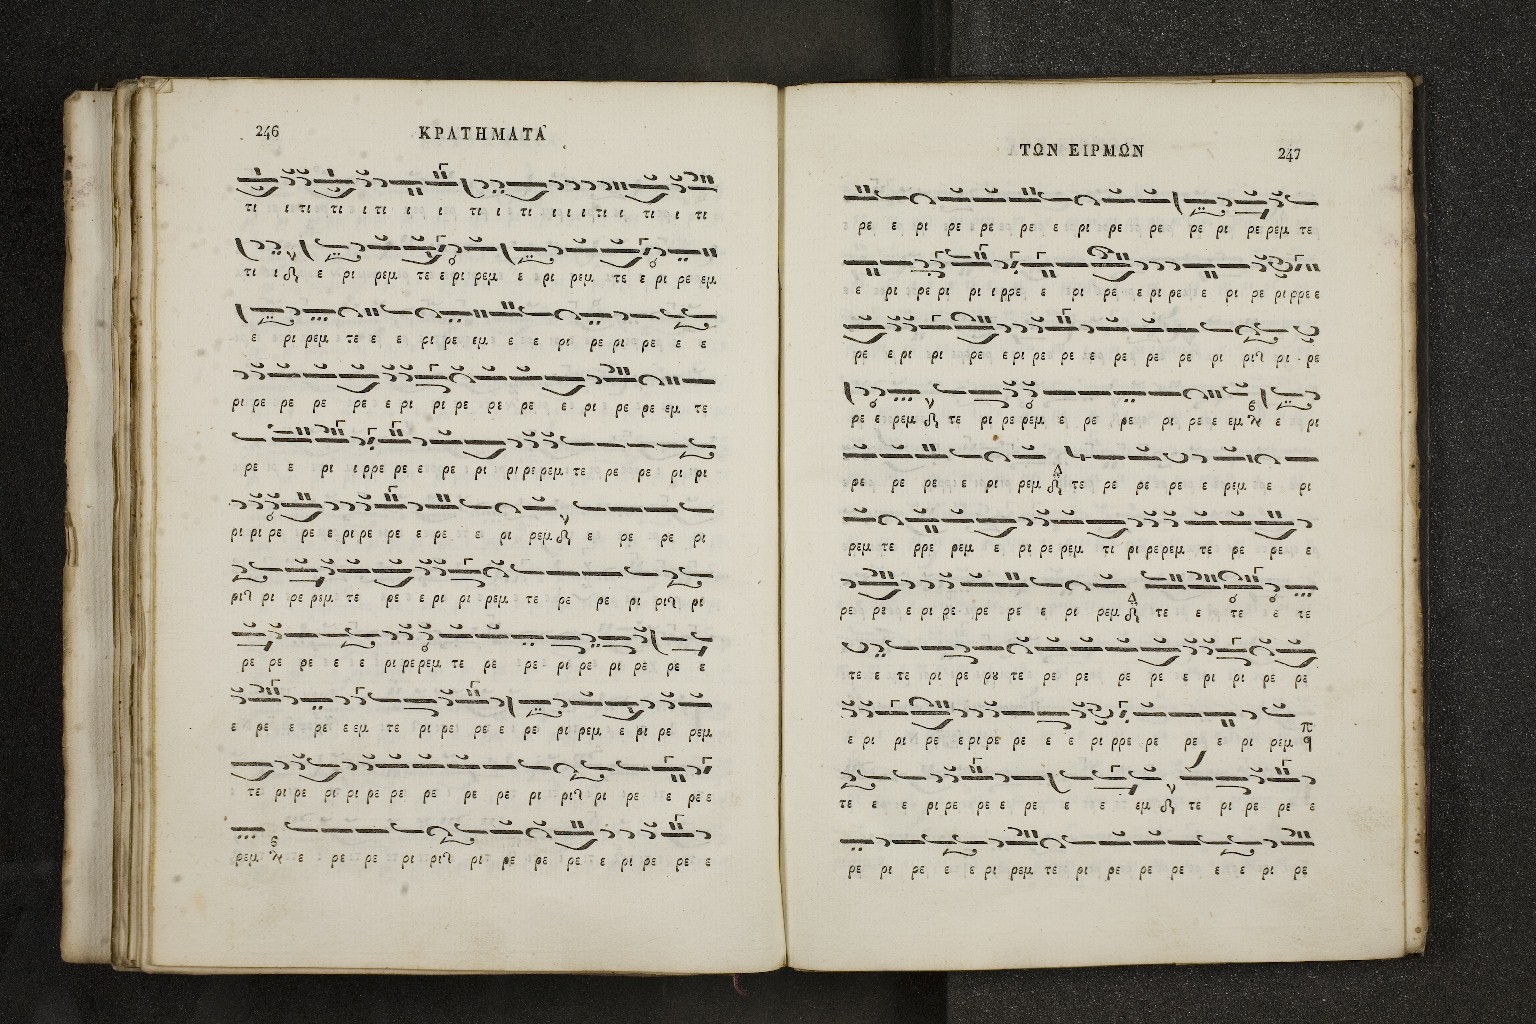 246
ΚΡΑΤΗΜΑΤΑ
τι ι τι τι ι τι ι ι τι ι τι ι ι ι τι ι τι ι τι
τι ι ε ρι ρεμ τε ε ρι ρεμ ε ρι ρεμ τε ε ρι ρε εμ
ε ρι ρεμ τε ε ε ρι ρε εμ ε ε ρι ρε ρι ρε ε ε
ρι ρε ρε ρε ρε ε ρι ρι ρε ρε ρε ε ρι ρε ρε εμ τε
ρε ε ρι ι ρρε ρε ε ρε ρι ρι ρε ρεμ τε ρε ρε ρι ρι
ρι ρι ρε ρε ε ρι ρε ρε ε ρε ε ρι ρεμ ε ρε ρε ρι
ρι ρι ρε ρεμ τε ρε ε ρι ρι ρεμ τε ρε ρε ρι ρι ρι
ρε ρε ρε ε ε ρι ρε ρεμ τε ρε ρε ρι ρε ρι ρε ρε ε
ε ρε ε ρε ε εμ τε ρι ρε ρε ε ρε ρι ρεμ ε ρι ρε ρεμ
τε ρι ρε ρι ρι ρε ρε ρε ρε ρε ρι ρι ρι ρε ε ρε ε
ρεμ ε ρε ρε ρι ρι ρι ρε ρε ρε ε ρι ρε ρε ε
ΤΩΝ ΕΙΡΜΩΝ
247
ρε ε ρι ρε ρε ρε ε ρι ρε ρε ρε ρι ρε ρεμ τε
ε ρι ρε ρι ρι ι ρρε ε ρι ρε ε ρι ρε ε ρι ρε ρι ρρε ε
ρε ε ρι ρι ρε ε ρι ρε ρε ε ρε ρε ρε ρι ρι ρι ρε
ρε ε ρεμ τε ρι ρε ρεμ ε ρε ρε ρι ρε ε εμ ε ρι
ρε ρε ρε ε ρι ρεμ τε ρε ρε ρε ε ρεμ ε ρι
ρεμ τε ρρε ρεμ ε ρι ρε ρεμ τι ρι ρε ρεμ τε ρε ρε ε
ρε ρε ε ρι ρε ρε ρε ε ρι ρεμ τε ε τε ε τε
τε ε τε ρι ρε ρου τε ρε ρε ρε ρε ε ρι ρι ρε ρε
ε ρι ρι ρε ε ρι ρε ρε ε ε ρι ρρε ρε ρε ε ρι ρεμ
τε ε ε ρι ρε ρε ε ρε ε ε εμ τε ρι ρε ρε ε
ρε ρι ρε ε ε ρι ρεμ τε ρι ρε ρε ρε ε ε ρι ρε